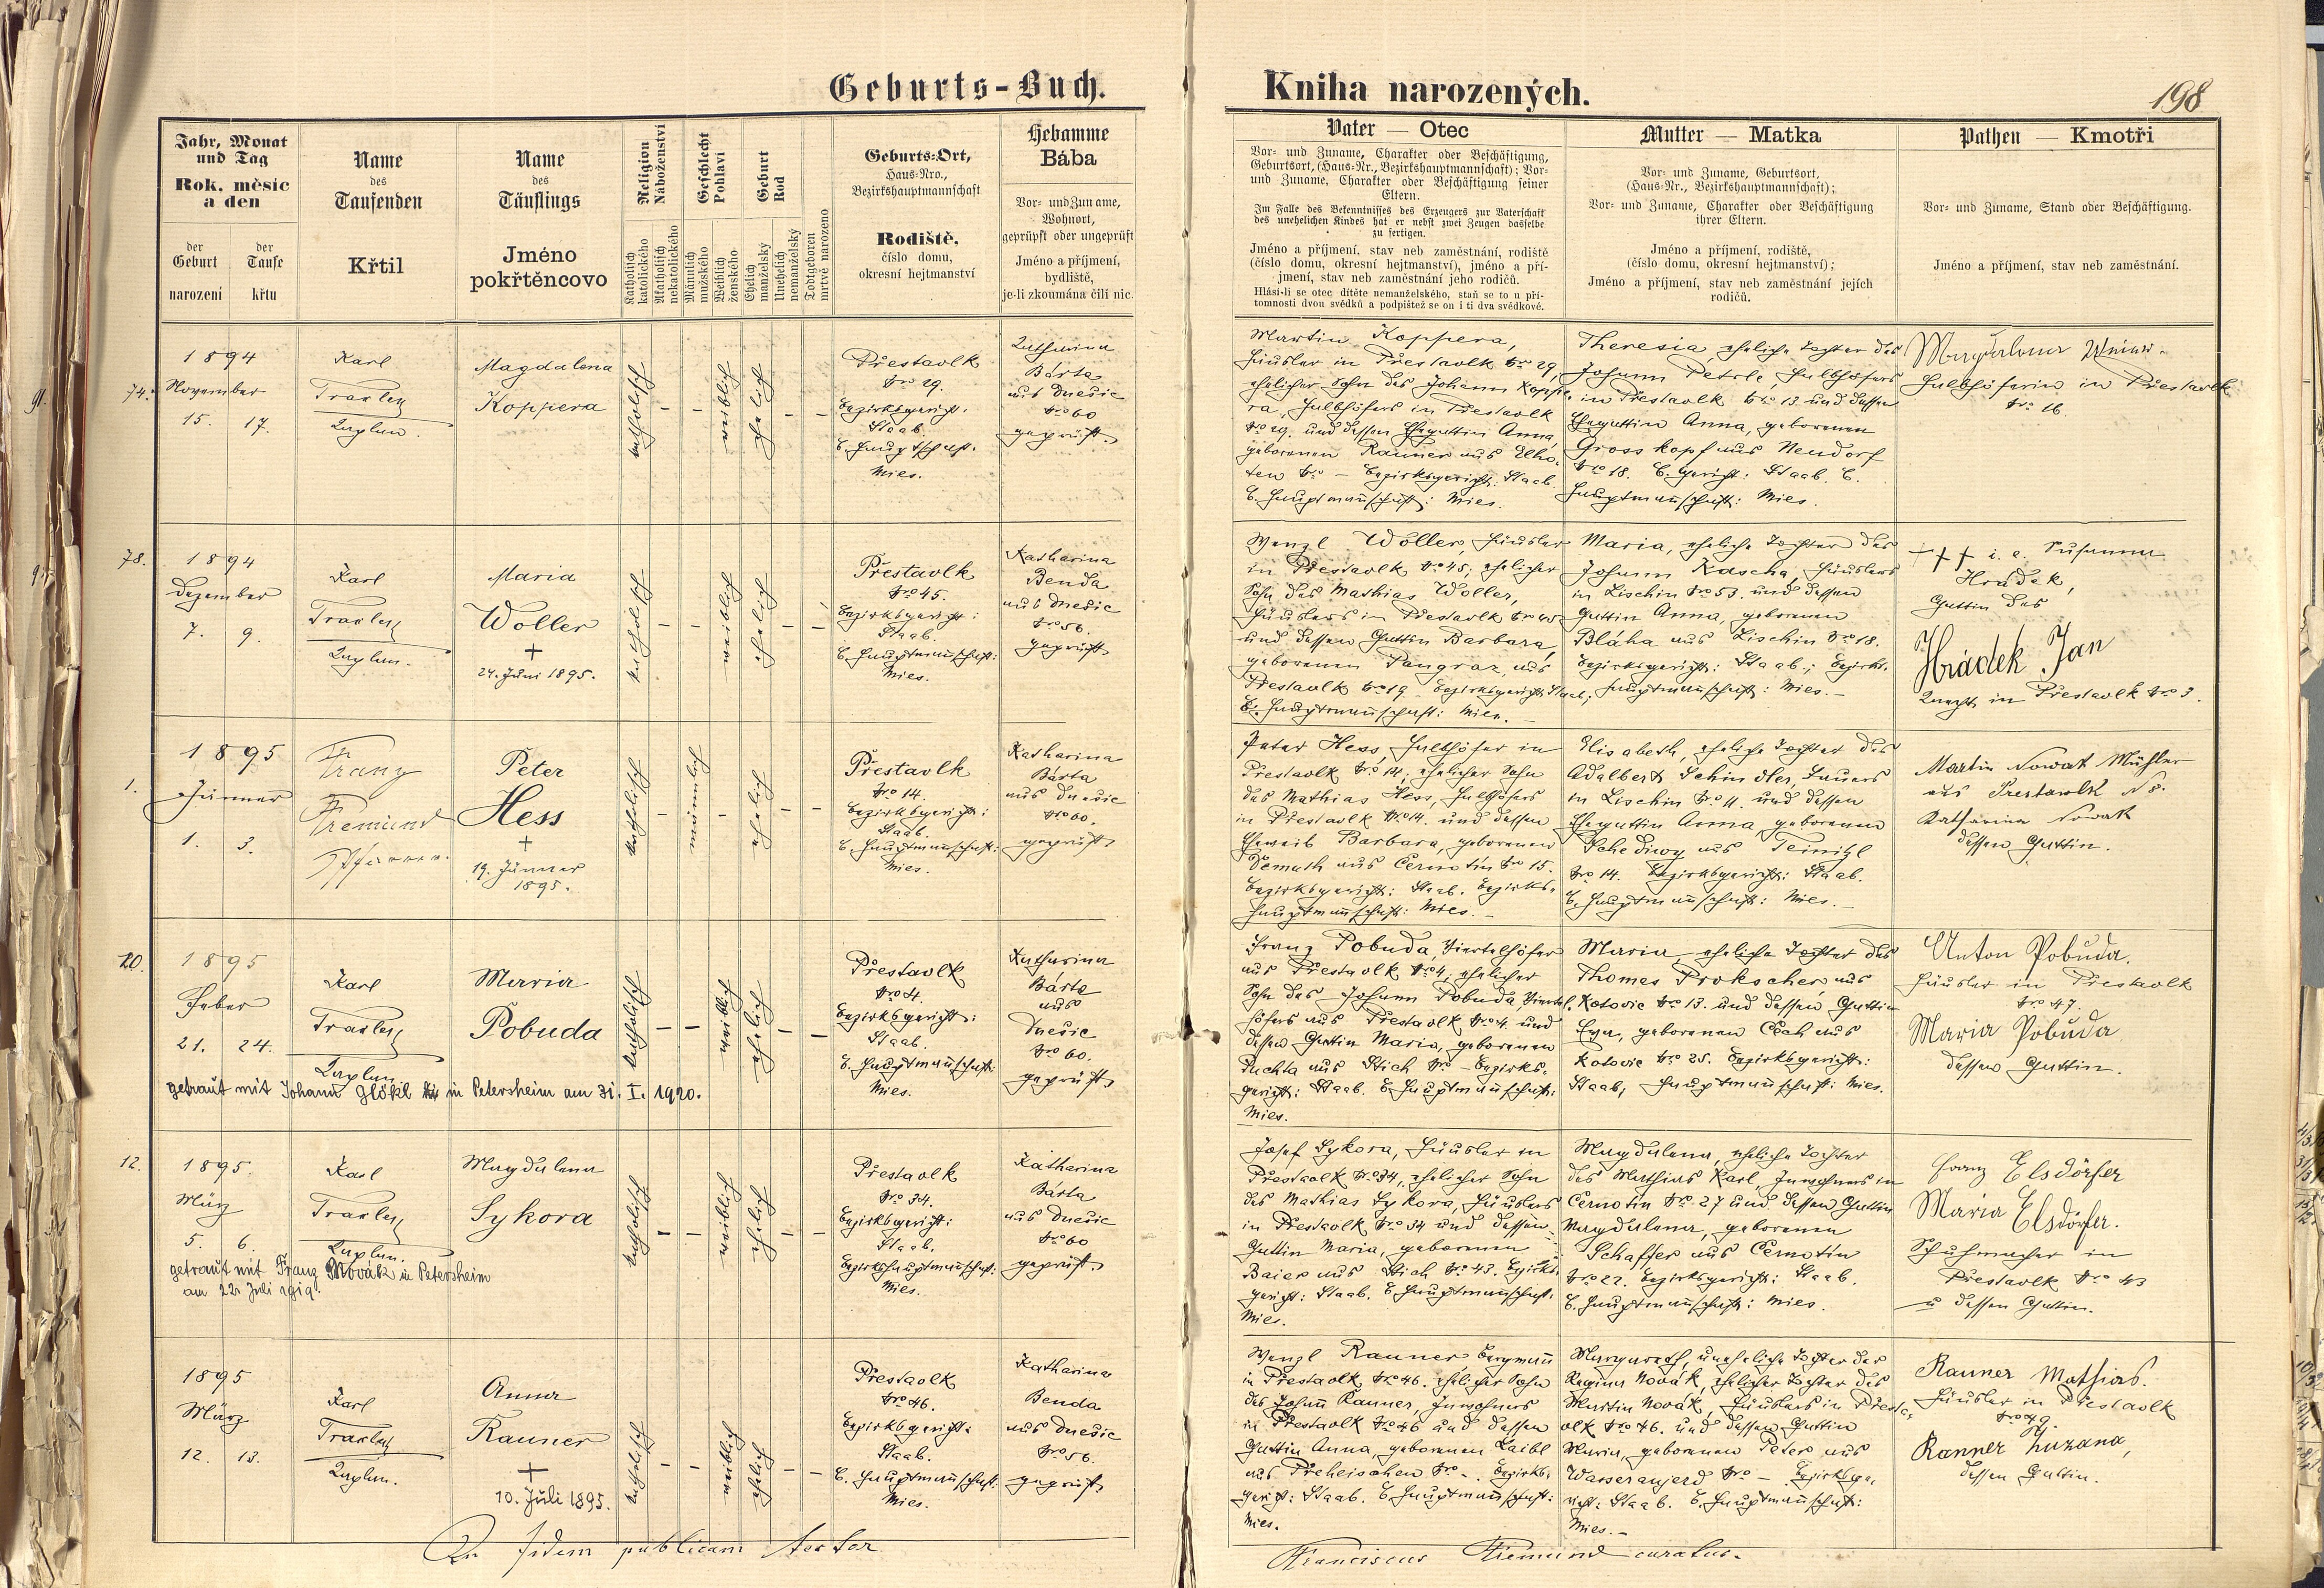 Geburts-Buch.
Kniha narozených.
198
Jahr, Monat
und Tag
Rok, měsíc
a den
der
Geburt
narození
der
Taufe
křtu
Name
des
Taufenden
Křtil
Name
des
Täuflings
Jméno
pokřtěncovo
Religion
Náboženství
Katholisch
katolického
Akatholisch
nekatolického
Geschlecht
Pohlaví
Männlich
mužského
Weiblich
ženského
Geburt
Rod
Ehelich
manželský
Unehelich
nemanželský
Todtgeboren
mrtvě narozeno
Geburts-Ort,
Haus-Nro.,
Bezirkshauptmannschaft
Rodiště,
číslo domu,
okresní hejtmanství
Hebamme
Bába
Vor- und Zuname,
Wohnort,
geprüpft oder ungeprüft
Jméno a příjmení,
bydliště,
je-li zkoumána čili nic.
Vater — Otec
Vor- und Zuname, Charakter oder Beschäftigung,
Geburtsort, (Haus-Nr., Bezirkshauptmannschaft); Vor-
und Zuname, Charakter oder Beschäftigung seiner
Eltern.
Im Falle des Bekenntnisses des Erzeugers zur Vaterschaft
des unehelichen Kindes hat er nebst zwei Zeugen dasselbe
zu fertigen.
Jméno a příjmení, stav neb zaměstnání, rodiště
(číslo domu, okresní hejtmanství), jméno a pří-
jmení, stav neb zaměstnání jeho rodičů.
Hlásí-li se otec dítěte nemanželského, staň se to u pří-
tomnosti dvou svědků a podpištež se on i ti dva svědkové.
Mutter — Matka
Vor- und Zuname, Geburtsort,
(Haus-Nr., Bezirkshauptmannschaft);
Vor- und Zuname, Charakter oder Beschäftigung
ihrer Eltern.
Jméno a příjmení, rodiště,
(číslo domu, okresní hejtmanství);
Jméno a příjmení, stav neb zaměstnání jejich
rodičů.
Pathen — Kmotři
Vor- und Zuname, Stand oder Beschäftigung.
Jméno a příjmení, stav neb zaměstnání.
74.
1894
November
15. 17.
Karl
Traxler
Kaplan.
Magdalena
Koppera
katholisch
weiblich
ehelich
Přestavlk
Nro 29.
Bezirksgericht.
Staab
B. Hauptschaft.
Mies.
Katharina
Bárta
aus Dnešic
Nro 60
geprüft
Martin Koppera,
Häusler in Přestavlk Nro 29,
ehelicher Sohn des Johann Koppe-
ra, Halbhöfers in Přestavlk
Nro 29. und dessen Ehegattin Anna,
geborenen Rauner aus Elho-
ten Nro — Bezirksgericht: Staab.
B. Hauptmannschaft: Mies.
Theresia, eheliche Tochter des
Johann Petrle, Halbhöfers
in Přestavlk Nro 13 und dessen
Ehegattin Anna, geborenen
Grosskopf aus Neudorf
Nro 18. B. Gericht: Staab. B.
Hauptmannschaft: Mies.
Magdalena
Halbhöferin in Přestavlk
Nro 16.
78.
1894
Dezember
7. 9.
Karl
Traxler
Kaplan.
Maria
Woller
+
24. Juni 1895.
katholisch
weiblich
ehelich
Přestavlk
Nro 45.
Bezirksgericht:
Staab.
B. Hauptmannschaft:
Mies.
Katharina
Benda
aus Dnešic
Nro 56.
geprüft
Wenzl Woller, Häusler
in Přestavlk Nro 45; ehelicher
Sohn des Mathias Woller,
Häuslers in Přestavlk Nro 45
und dessen Gattin Barbara,
geborenen Pangraz aus
Přestavlk Nro 19. Bezirksgericht Staab;
B. Hauptmannschaft: Mies.
Maria, eheliche Tochter des
Johann Kascha, Häuslers
in Lischin Nro 53. und dessen
Gattin Anna, geborenen
Bláha aus Lischin Nro 18.
Bezirksgericht: Staab; Bezirks-
hauptmannschaft: Mies.
+++ i. e. Susanna
Hradek,
Gattin des
Hrádek Jan
Knecht in Přestavlk Nro 3.
1.
1895
Jänner
1. 3.
Franz
Fremund
Pfarrer.
Peter
Hess
+
19. Jänner
1895.
katholisch
männlich
ehelich
Přestavlk
Nro 14.
Bezirksgericht:
Staab.
B. Hauptmannschaft:
Mies.
Katharina
Bárta
aus Dnešic
Nro 60.
geprüft
Peter Hess, Halbhöfer in
Přestavlk Nro 14; ehelicher Sohn
des Mathias Hess, Halbhöfers
in Přestavlk Nro 14. und dessen
Eheweib Barbara, geborenen
Demuth aus Černotin Nro 15.
Bezirksgericht: Staab. Bezirks-
hauptmannschaft: Mies.
Elisabeth, eheliche Tochter des
Adalbert Schindler, Bauers
in Lischin Nro 11. und dessen
Ehegattin Anna, geborenen
Schediwy aus Teinitzl
Nro 14. Bezirksgericht: Staab.
B. Hauptmannschaft: Mies.
Martin Nowak Mühler
aus Prestawlk N 8.
Katharina Nowak
dessen Gattin.
20.
1895
Feber
21. 24.
Karl
Traxler
Kaplan
Maria
Pobuda
katholisch
weiblich
ehelich
Přestavlk
Nro 4.
Bezirksgericht:
Staab.
B. Hauptmannschaft
Mies.
Katharina
Bárta
aus
Dnešic
Nro 60.
geprüft
getraut mit Johann Glökl in Petersheim am 31. I. 1920.
Franz Pobuda, Viertelhöfer
aus Přestavlk Nro 4, ehelicher
Sohn des Johann Pobuda, Viertel-
höfers aus Přestavlk Nro 4. und
dessen Gattin Maria, geborenen
Puchta aus Stich Nro — Bezirks-
gericht: Staab. B. Hauptmannschaft:
Mies.
Maria, eheliche Tochter des
Thomas Prokscher aus
Kotovic Nro 13. und dessen Gattin
Eva, geborenen Čech aus
Kotovic Nro 25. Bezirksgericht:
Staab, Hauptmannschaft: Mies.
Anton Pobuda.
Häusler in Přestavlk
Nro 47.
Maria Pobuda
dessen Gattin.
12.
1895.
März
5. 6.
Karl
Traxler
Kaplan.
Magdalena
Sykora
katholisch
weiblich
ehelich
Přestavlk
Nro 34.
Bezirksgericht:
Staab.
Bezirkshauptmannschaft:
Mies.
Katharina
Bárta
aus Dnešic
Nro 60
geprüft
getraut mit Franz Novák in Petersheim
am 22. Juli 1919.
Josef Sykora, Häusler in
Přestavlk Nro 34, ehelicher Sohn
des Mathias Sykora, Häuslers
in Přestavlk Nro 34 und dessen
Gattin Maria, geborenen
Baier aus Stich Nro 43. Bezirks-
gericht: Staab. B. Hauptmannschaft.
Mies.
Magdalena, eheliche Tochter
des Mathias Karl, Inwohners in
Černotin Nro 27 und dessen Gattin
Magdalena, geborenen
Schaffer aus Černotin
Nro 22. Bezirksgericht: Staab.
B. Hauptmannschaft: Mies.
Franz Elsdörfer
Maria Elsdörfer.
Schuhmacher in
Přestavlk Nro 43
u dessen Gattin.
1895
März
12. 13.
Karl
Traxler
Kaplan.
Anna
Rauner
+
10. Juli 1895.
katholisch
weiblich
ehelich
Přestavlk
Nro 46.
Bezirksgericht:
Staab.
B. Hauptmannschaft:
Mies.
Katharina
Benda
aus Dnešic
Nro 56.
geprüft
Wenzl Rauner Bergmann
in Přestavlk Nro 46. ehelicher Sohn
des Johann Rauner, Inwohners
in Přestavlk Nro 46 und dessen
Gattin Anna, geborenen Laibl
aus Preheischen Nro -. Bezirks-
gericht: Staab. B. Hauptmannschaft:
Mies.
Margareth, uneheliche Tochter der
Regina Novák, ehelicher Tochter des
Martin Novák, Häuslers in Přesta-
vlk Nro 46. und dessen Gattin
Maria, geborenen Peter aus
Wasseraujezd Nro — Bezirksge-
richt: Staab. B. Hauptmannschaft:
Mies.
Rauner Mathias.
Häusler in Přestavlk
Nro 49.
Ranner Zuzana,
dessen Gattin.
In fidem publicam testor
Franciscus Fremund curatus.